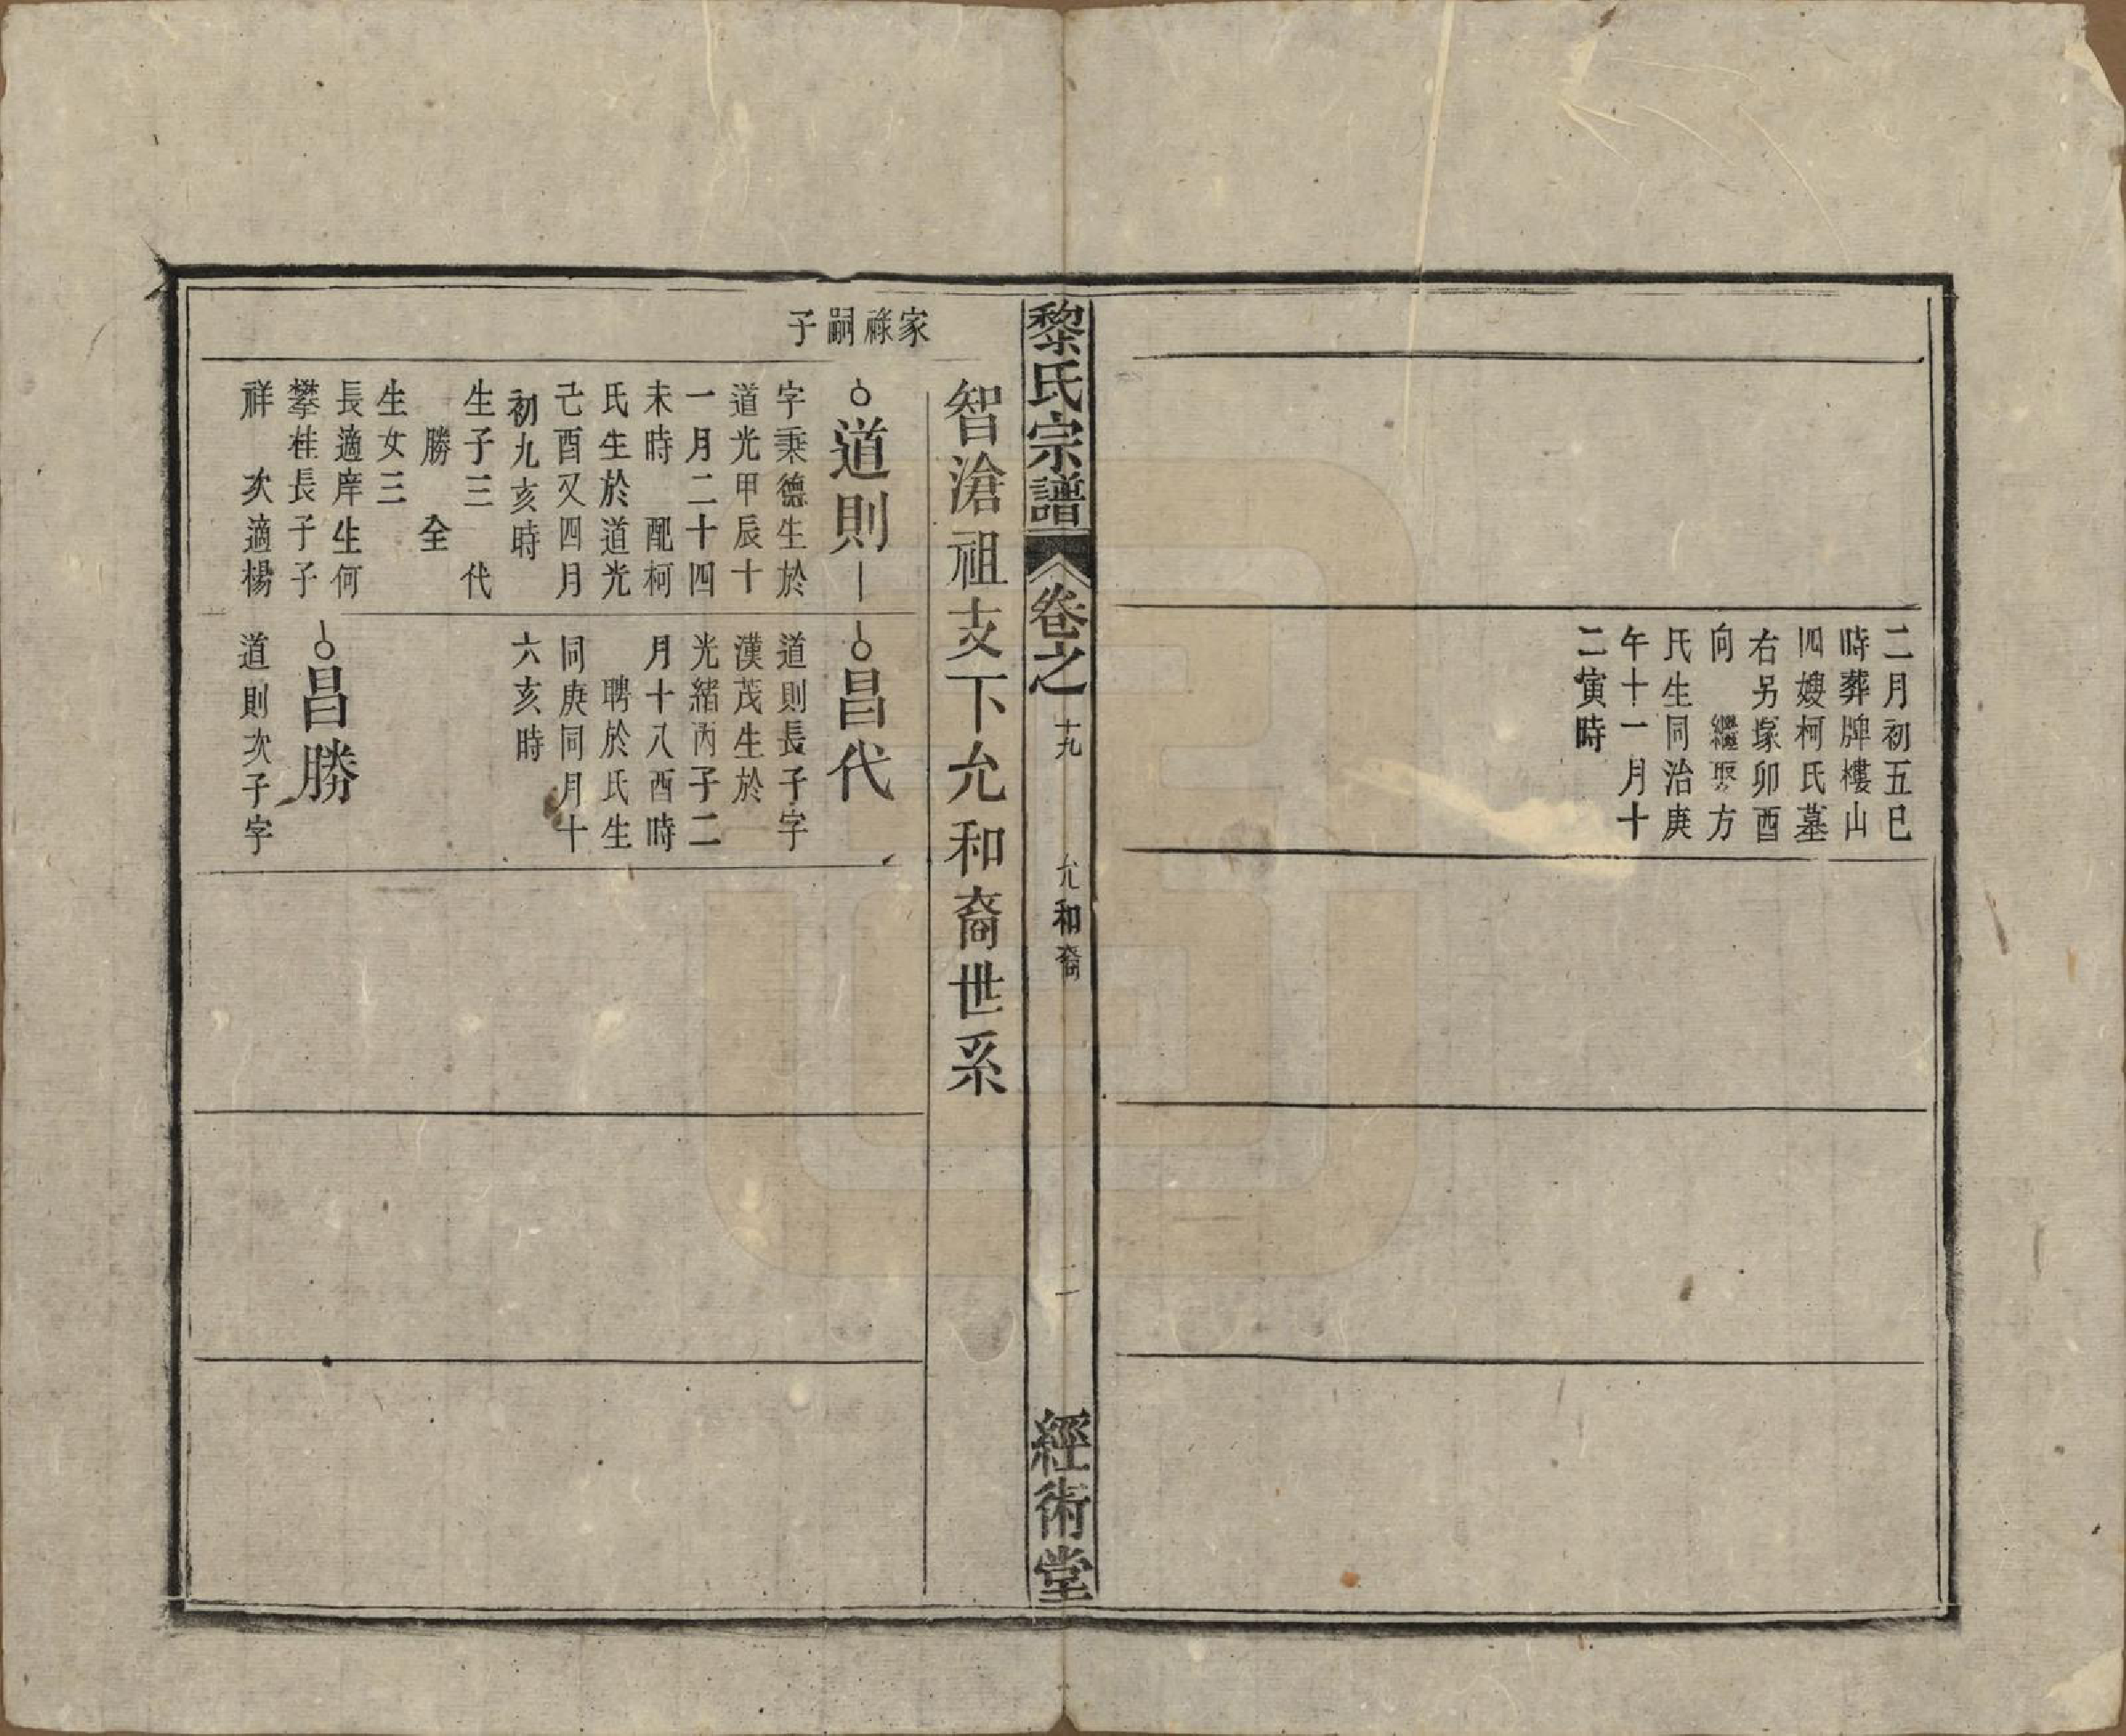 二月初五巳
時葬牌樓山
四嫂柯氏墓
右另塚卯酉
向 繼聚方
氏生同治庚
午十一月十
二寅時
黎氏宗譜 卷之 十九 允和裔 二 經術堂
智滄祖支下允和裔世系
家祿嗣子
道則
字秉德生於
道光甲辰十
一月二十四
未時 配柯
氏生於道光
己酉又四月
初九亥時
生子三 代
勝 全
生女三
長適庠生何
攀桂長子子
祥 次適楊
昌代
道則長子字
漢茂生於
光緒丙子二
月十八酉時
聘於氏生
同庚同月十
六亥時
昌勝
道則次子字